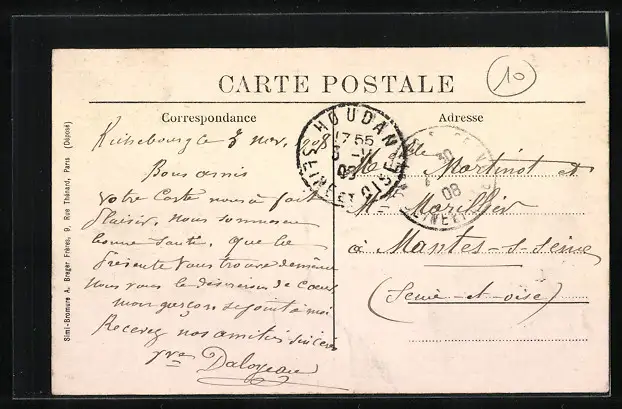 CARTE POSTALE
10
Correspondance
Adresse
Richebourg le 3 nov. 1908
Bons amis
Votre Carte nous a fait
plaisir, nous sommes en
bonne santé, que la
présente vous trouve de même
Nous vous le désirons de Cœur
mon garçon se joint à moi
Recevez nos amitiés sincères
Vve Daloyeau
Mlle Martinot et
Mr Morillier
à Mantes-s-Seine
(Seine-et-oise)
HOUDAN
17 55
3 -11
08
SEINE ET OISE
30
08
Simi-Bromure A. Breger Frères, 9, Rue Thénard, Paris (Déposé)